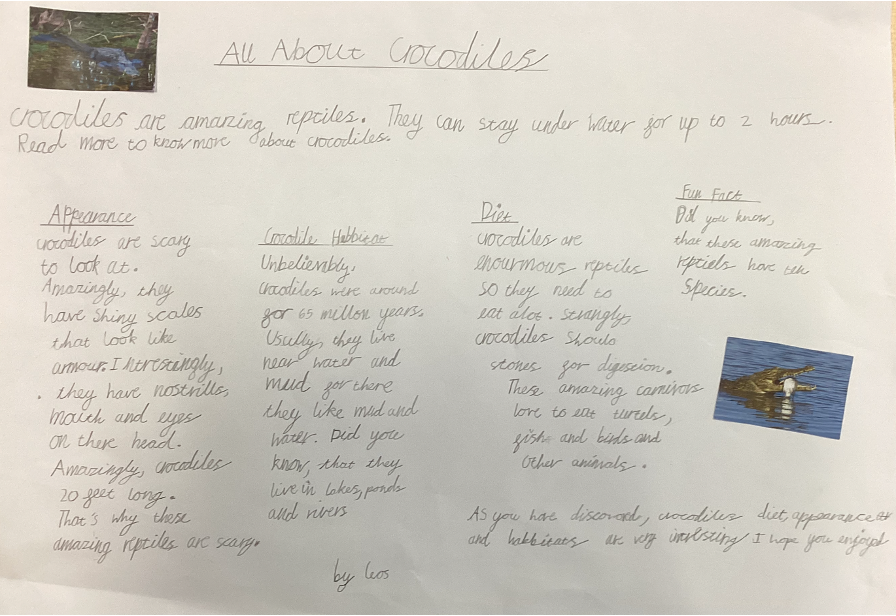 All About Crocodiles
Crocodiles are amazing reptiles. They can stay under water for up to 2 hours.
Read more to know more about crocodiles.
Appearance
crocodiles are scary
to look at.
Amazingly, they
have shiny scales
that look like
armour. Intrestingly,
they have nostrills,
mouth and eyes
on there head.
Amazingly, crocodiles
20 feet long.
That's why these
amazing reptiles are scary.
Crocodile Habbitat
Unbelievably,
crocodiles were around
for 65 millon years.
Usully, they live
near water and
mud for there
they like mud and
water. Did you
know, that they
live in lakes, ponds
and rivers
Diet
crocodiles are
enourmous reptiles
so they need to
eat alot. Strangly,
crocodiles
stones for digestion.
These amazing carnivors
love to eat turtels,
fish and birds and
other animals.
Fun Fact
Did you know,
that these amazing
reptiels have ten
species.
As you have discoverd, crocodiles diet, appearance
and habbitats are very intresting I hope you enjoyd
by Leos